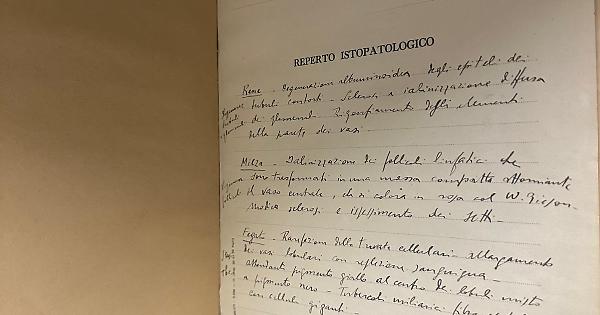 REPERTO ISTOPATOLOGICO
Rene - Degenerazione albuminoidea degli epiteli dei
tubuli contorti - Sclerosi e ialinizzazione diffusa
dei glomeruli - Rigonfiamento degli elementi
della parete dei vasi -
Milza - Ialinizzazione dei follicoli linfatici che
sono trasformati in una massa compatta attorniante
il vaso centrale, che si colora in rosa col W. Gieson -
Modica sclerosi e ispessimento dei setti -
Fegato - Rarefazione delle travate cellulari - allargamento
dei vasi lobulari con replezione sanguigna -
abbondante pigmento giallo al centro dei lobuli misto
a pigmento nero - Tubercoli miliarici
con cellule giganti -